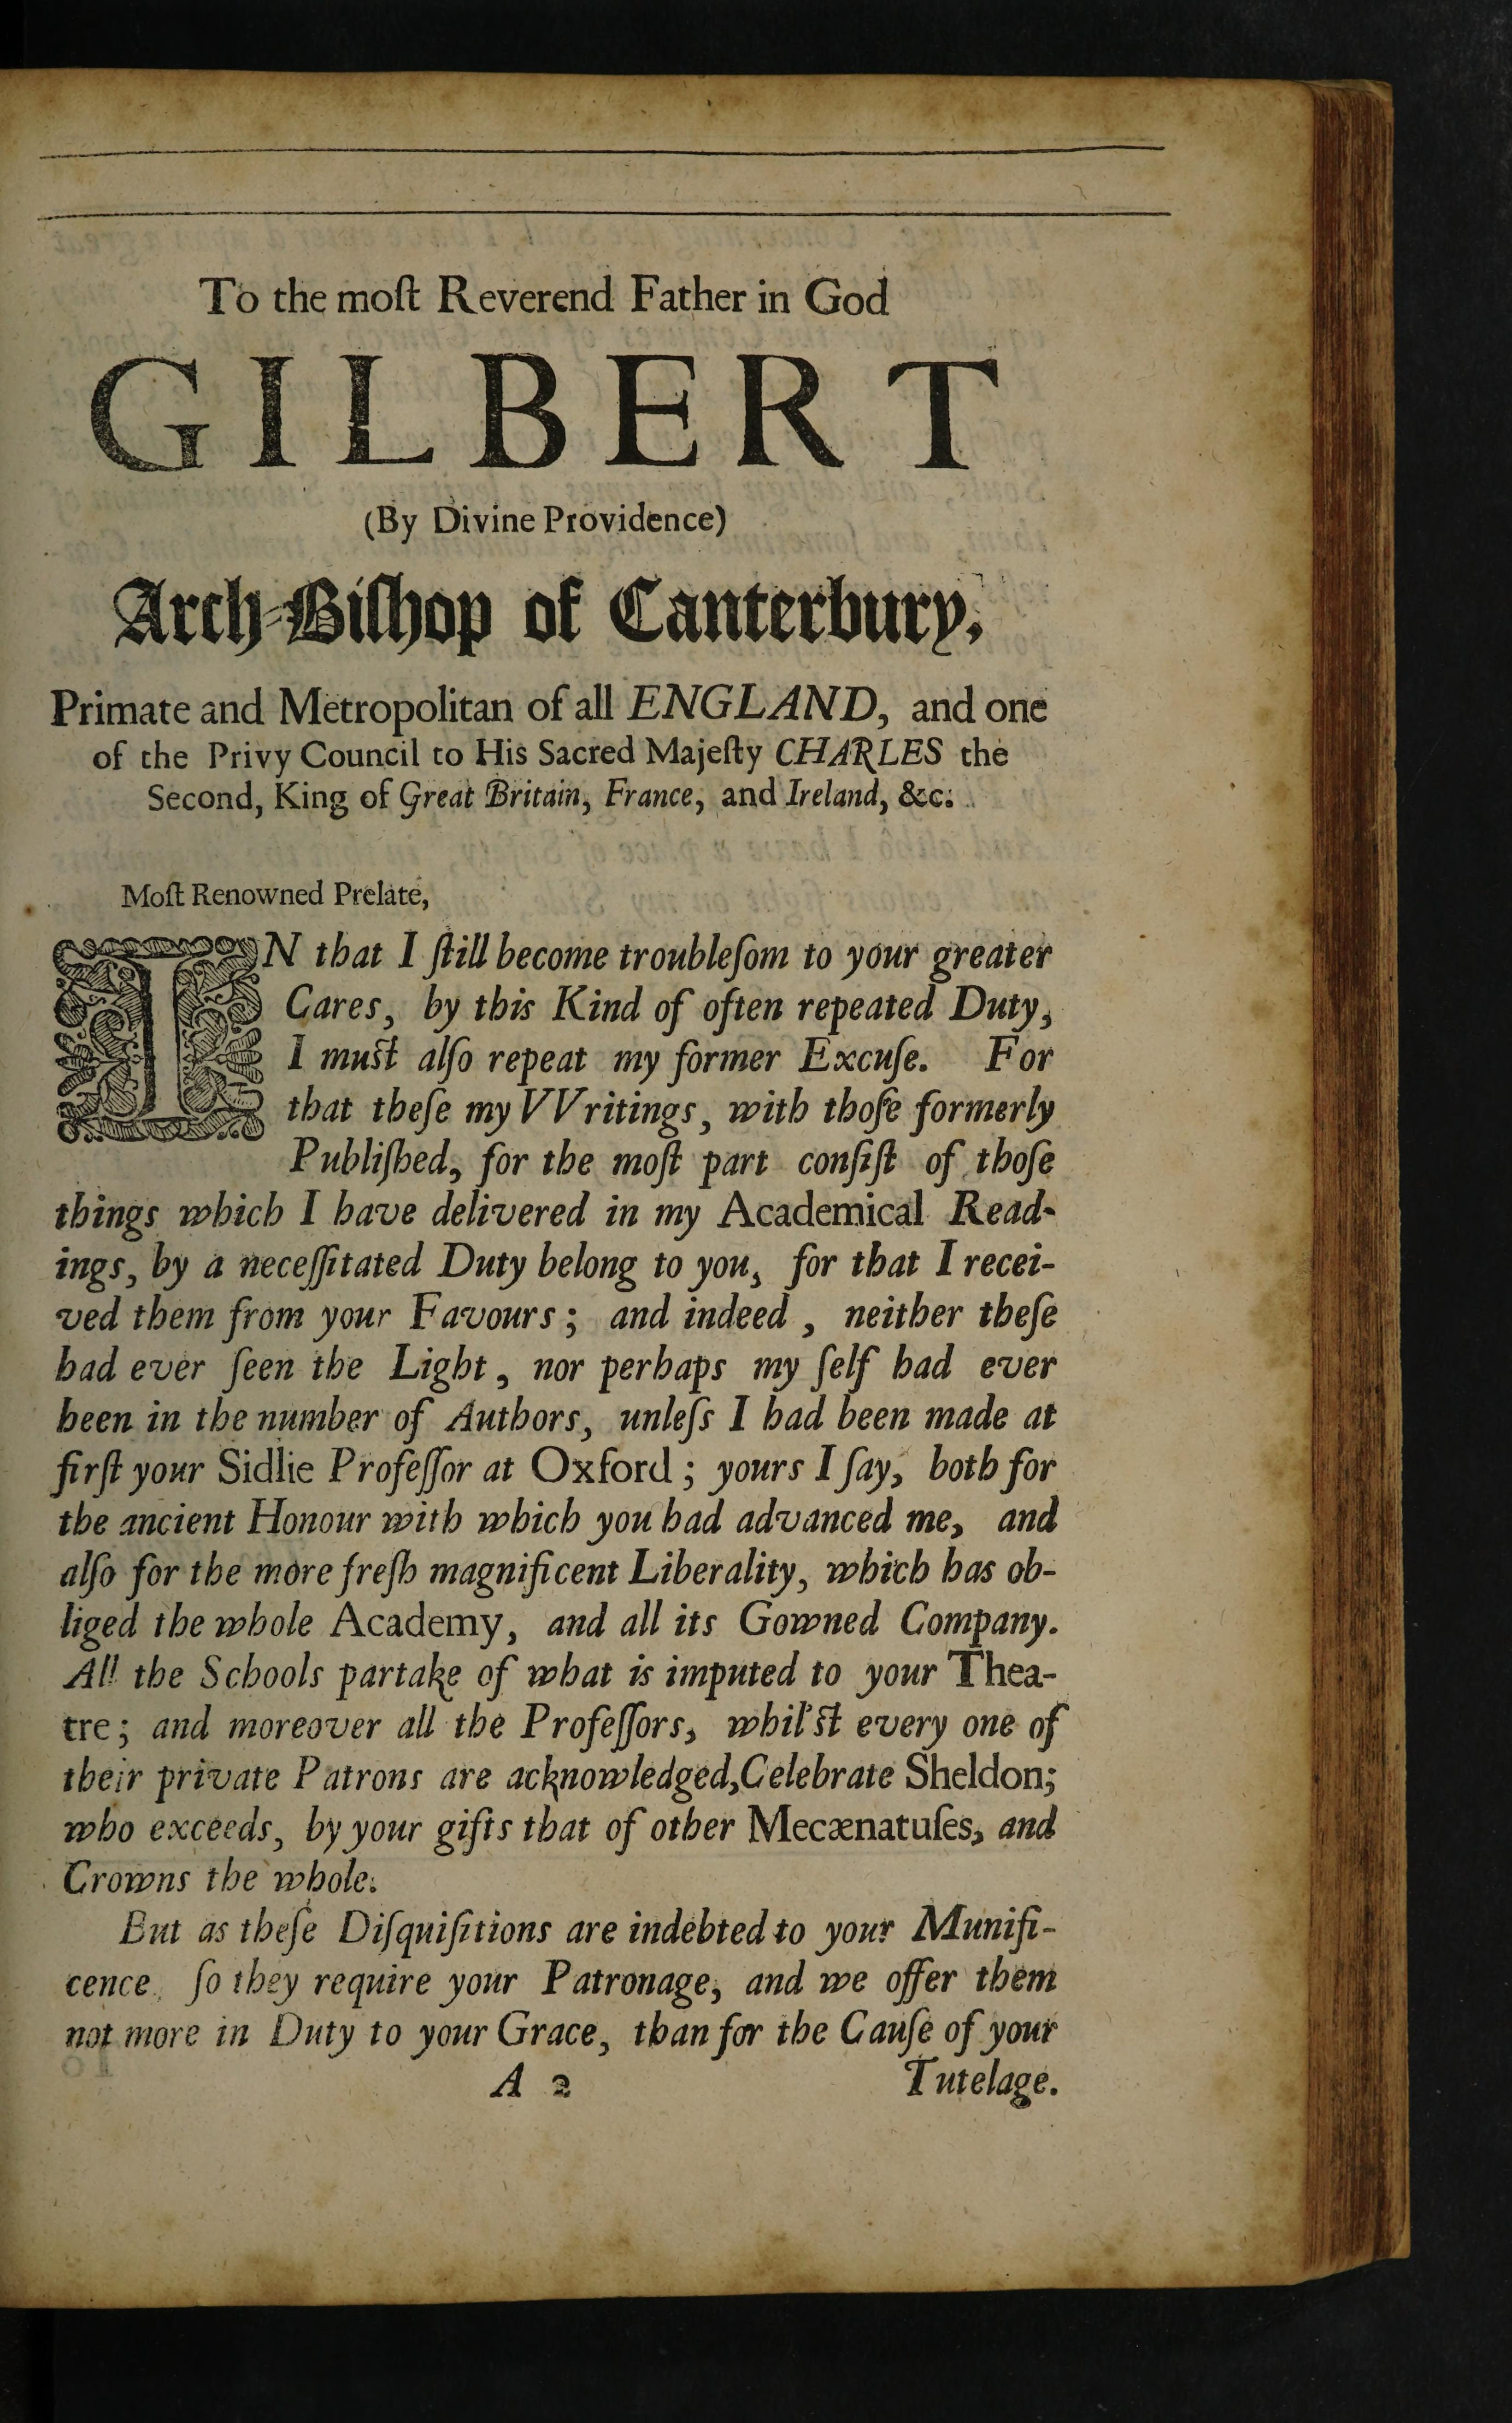 To the moſt Reverend Father in God
GILBERT
(By Divine Providence)
Arch-Biſhop of Canterbury,
Primate and Metropolitan of all ENGLAND, and one
of the Privy Council to His Sacred Majeſty CHARLES the
Second, King of Great Britain, France, and Ireland, &c.
Moſt Renowned Prelate,
IN that I ſtill become troubleſom to your greater
Cares, by this Kind of often repeated Duty,
I muſt alſo repeat my former Excuſe. For
that theſe my VVritings, with thoſe formerly
Publiſhed, for the moſt part conſiſt of thoſe
things which I have delivered in my Academical Read-
ings, by a neceſſitated Duty belong to you, for that I recei-
ved them from your Favours; and indeed, neither theſe
had ever ſeen the Light, nor perhaps my ſelf had ever
been in the number of Authors, unleſs I had been made at
firſt your Sidlie Profeſſor at Oxford; yours I ſay, both for
the ancient Honour with which you had advanced me, and
alſo for the more freſh magnificent Liberality, which has ob-
liged the whole Academy, and all its Gowned Company.
All the Schools partake of what is imputed to your Thea-
tre; and moreover all the Profeſſors, whil'ſt every one of
their private Patrons are acknowledged, Celebrate Sheldon;
who exceeds, by your gifts that of other Mecænatuſes, and
Crowns the whole.
But as theſe Diſquiſitions are indebted to your Munifi-
cence, ſo they require your Patronage, and we offer them
not more in Duty to your Grace, than for the Cauſe of your
A 2 Tutelage.